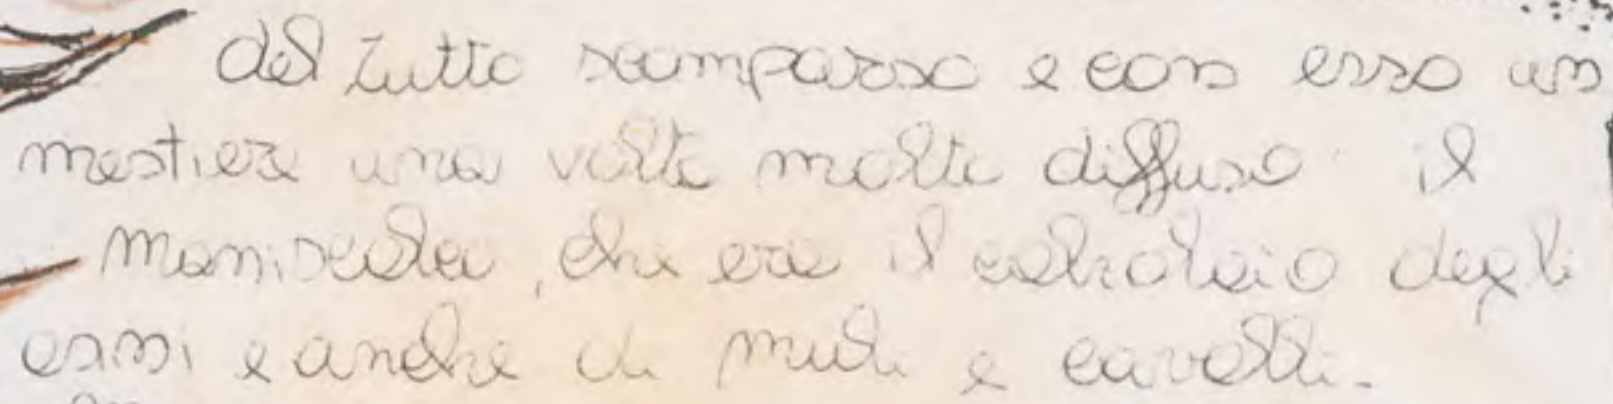 del tutto scomparso e con esso un
mestiere una volta molto diffuso il
maniscalco, che era il calzolaio degli
asini e anche di muli e cavalli.